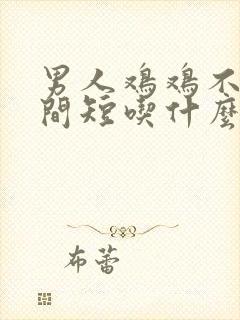 男人鸡鸡不
間短喫什麼
布蕾